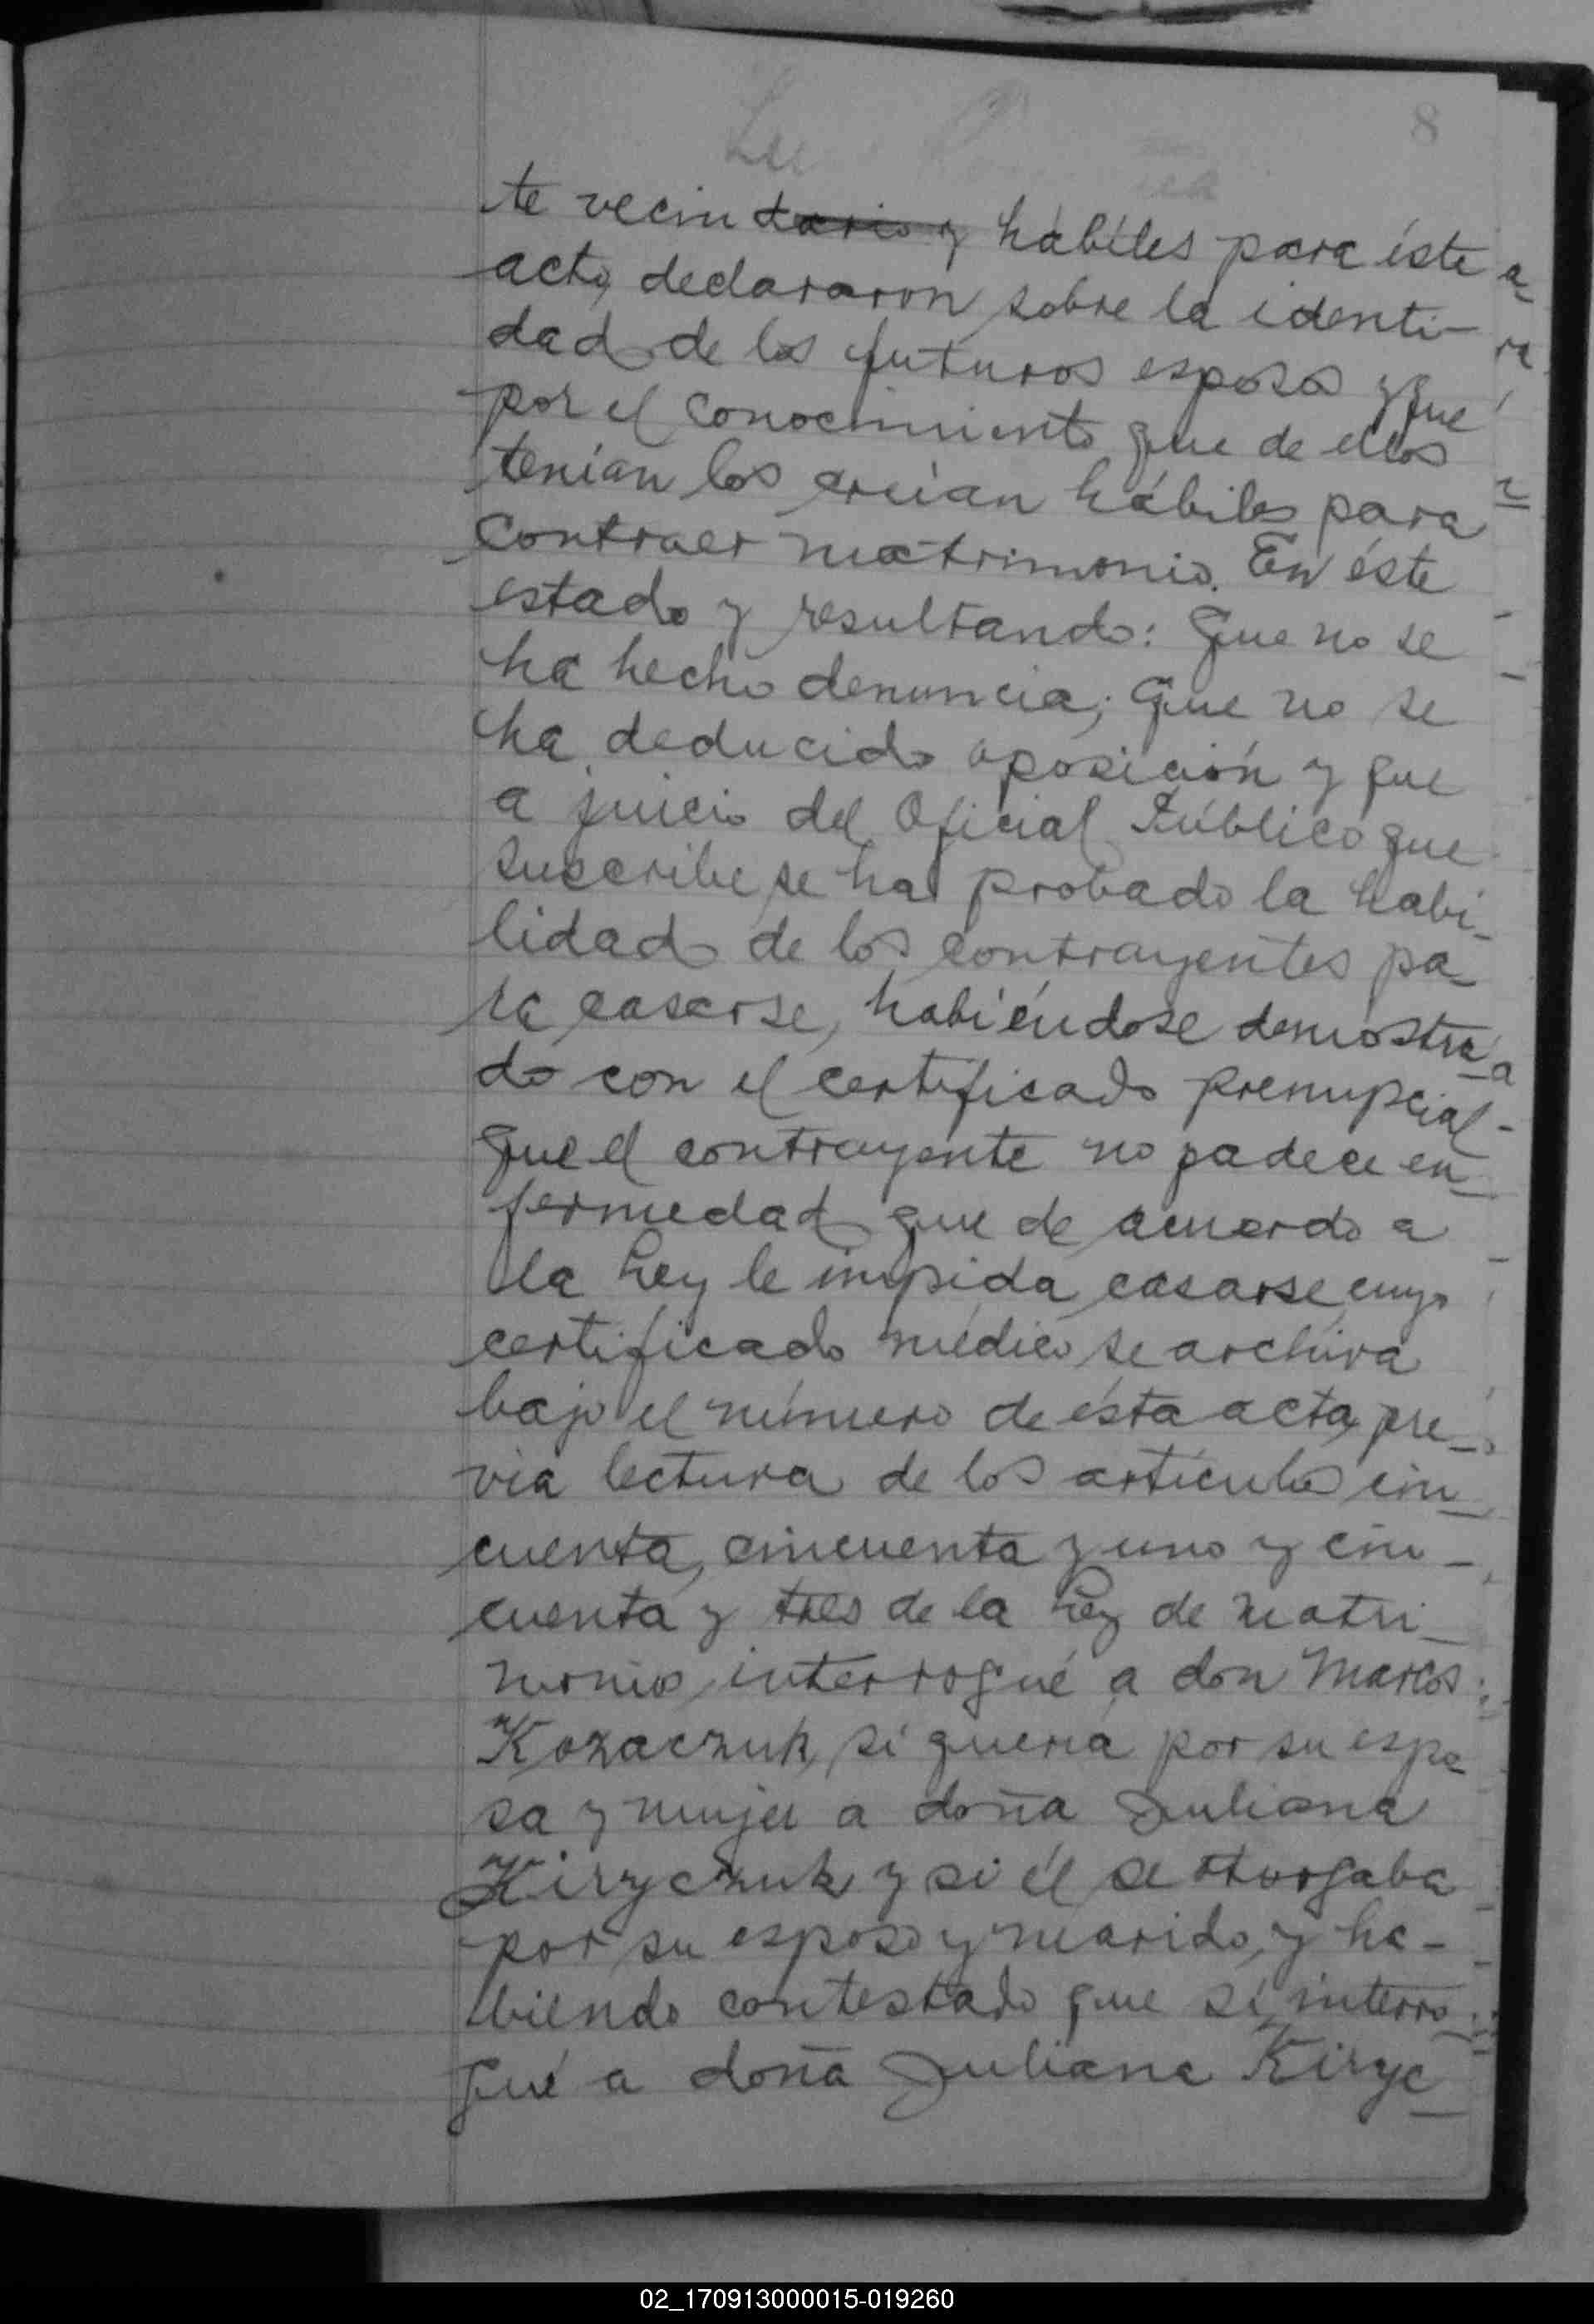 8
te vecindario y hábiles para éste
acto, declararon sobre la identi-
dad de los futuros esposos y que
por el conocimiento que de ellos
tenían los creían hábiles para
contraer matrimonio. En éste
estado y resultando: Que no se
ha hecho denuncia; Que no se
ha deducido oposición y que
a juicio del Oficial Público que
suscribe se ha probado la habi-
lidad de los contrayentes pa-
ra casarse, habiéndose demostra-
do con el certificado prenupcial
que el contrayente no padece en-
fermedad que de acuerdo a
la Ley le impida casarse, cuyo
certificado médico se archiva
bajo el número de ésta acta, pre-
via lectura de los artículos cin-
cuenta, cincuenta y uno y cin-
cuenta y tres de la Ley de Matri-
monio, interrogué a don Marcos
Kozaczuk, si quería por su espo-
sa y mujer a doña Juliana
Kiryczuk y si él se otorgaba
por su esposo y marido, y ha-
biendo contestado que sí, interro-
gué a doña Juliana Kiryc-
02_170913000015-019260